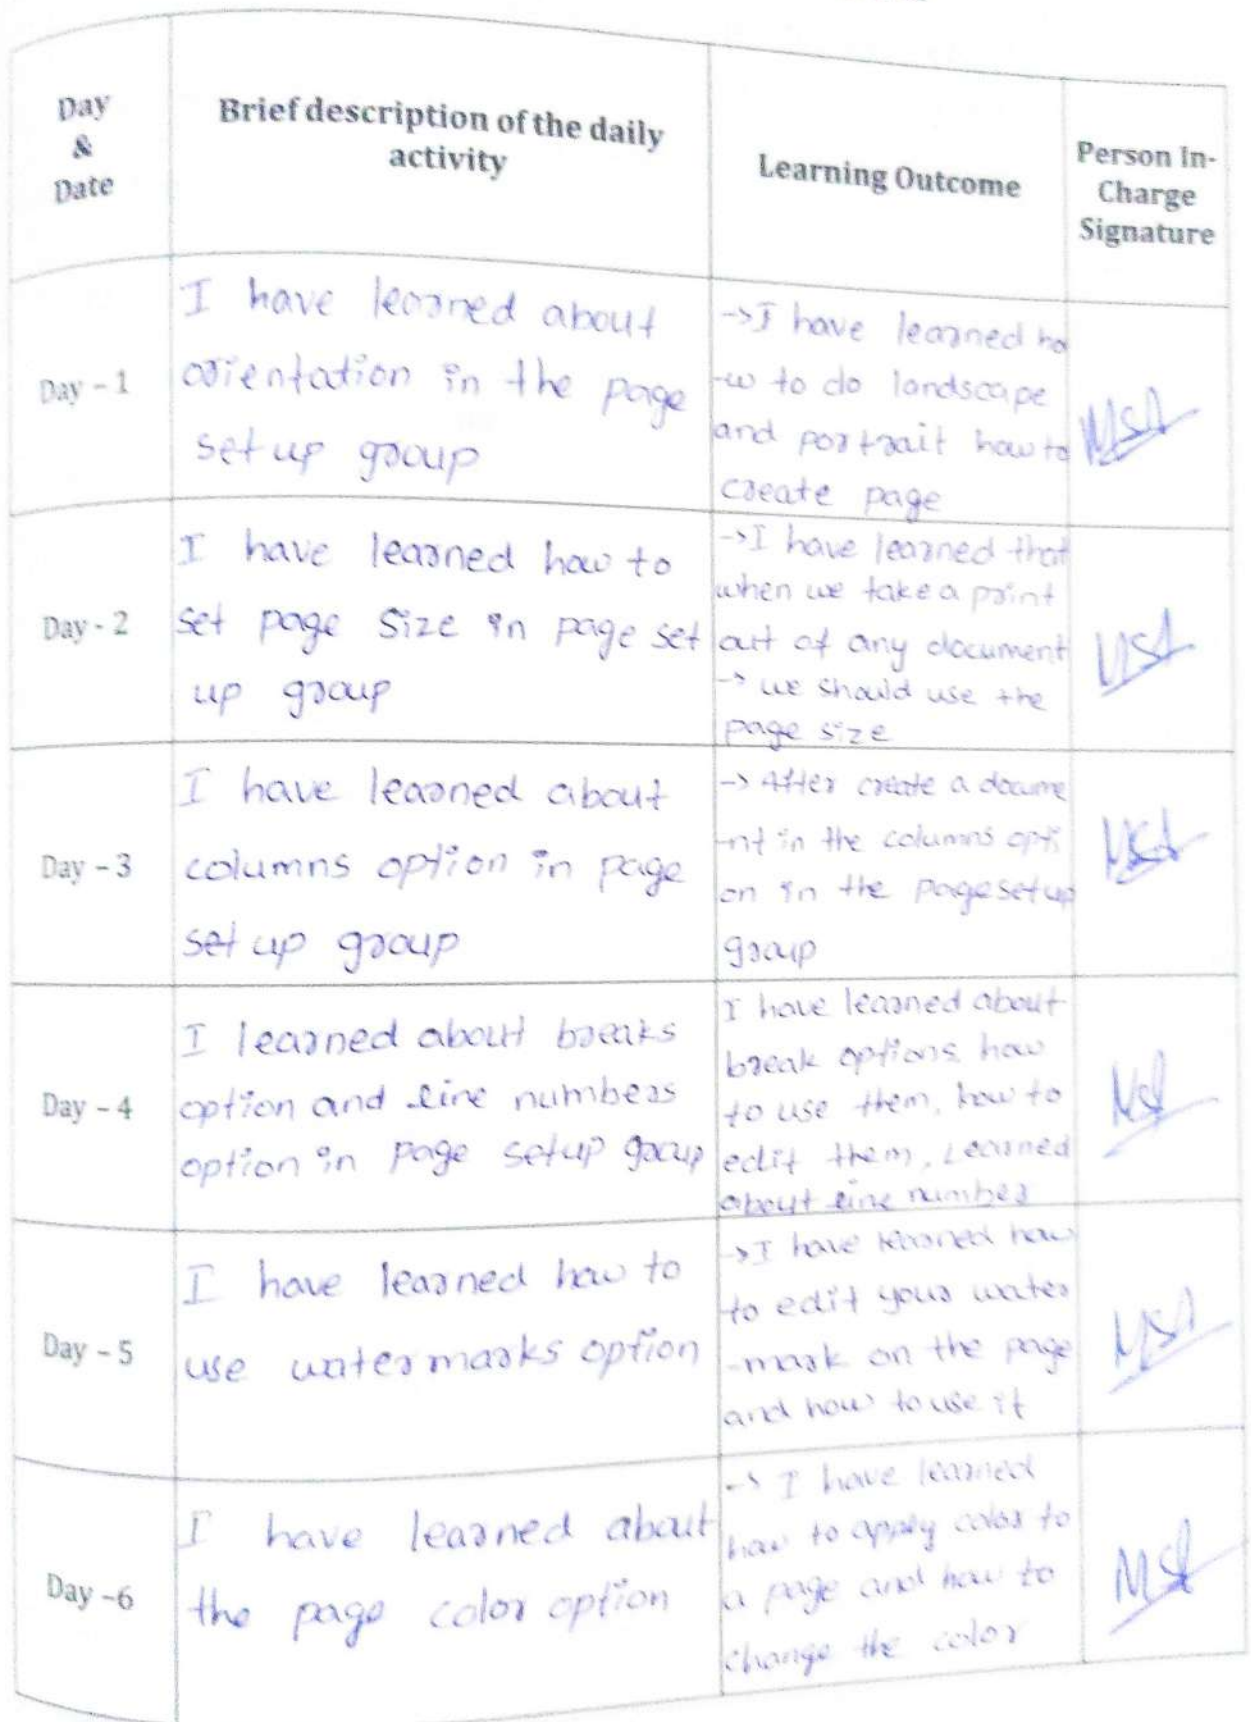 Day
&
Date
Brief description of the daily
activity
Learning Outcome
Person In-
Charge
Signature
Day – 1
I have learned about
orientation in the page
set up group
->I have learned ho
-w to do landscape
and portrait how to
create page
Day - 2
I have learned how to
set page size in page set
up group
->I have learned that
when we take a print
out of any document
-> we should use the
page size
Day – 3
I have learned about
columns option in page
set up group
-> After create a docume
-nt in the columns opti
on in the page setup
group
Day – 4
I learned about breaks
option and line numbers
option in page setup group
I have learned about
break options how
to use them, how to
edit them, Learned
about line number
Day – 5
I have learned how to
use watermarks option
->I have learned how
to edit your water
-mark on the page
and how to use it
Day –6
I have learned about
the page color option
-> I have learned
how to apply color to
a page and how to
change the color